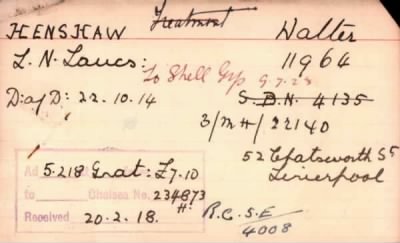 HENSHAW Treatment Walter
L. N. Lancs: 11964
To Shell Gp 9.7.28
D: of D: 22.10.14 S.B.N. 4135
3/MH/22140
52 Chatsworth St
Liverpool
Ad 5.2.18 Grat: £7.10
to Chelsea No. 234873
H.
Received 20.2.18.
R.C. S.E/4008